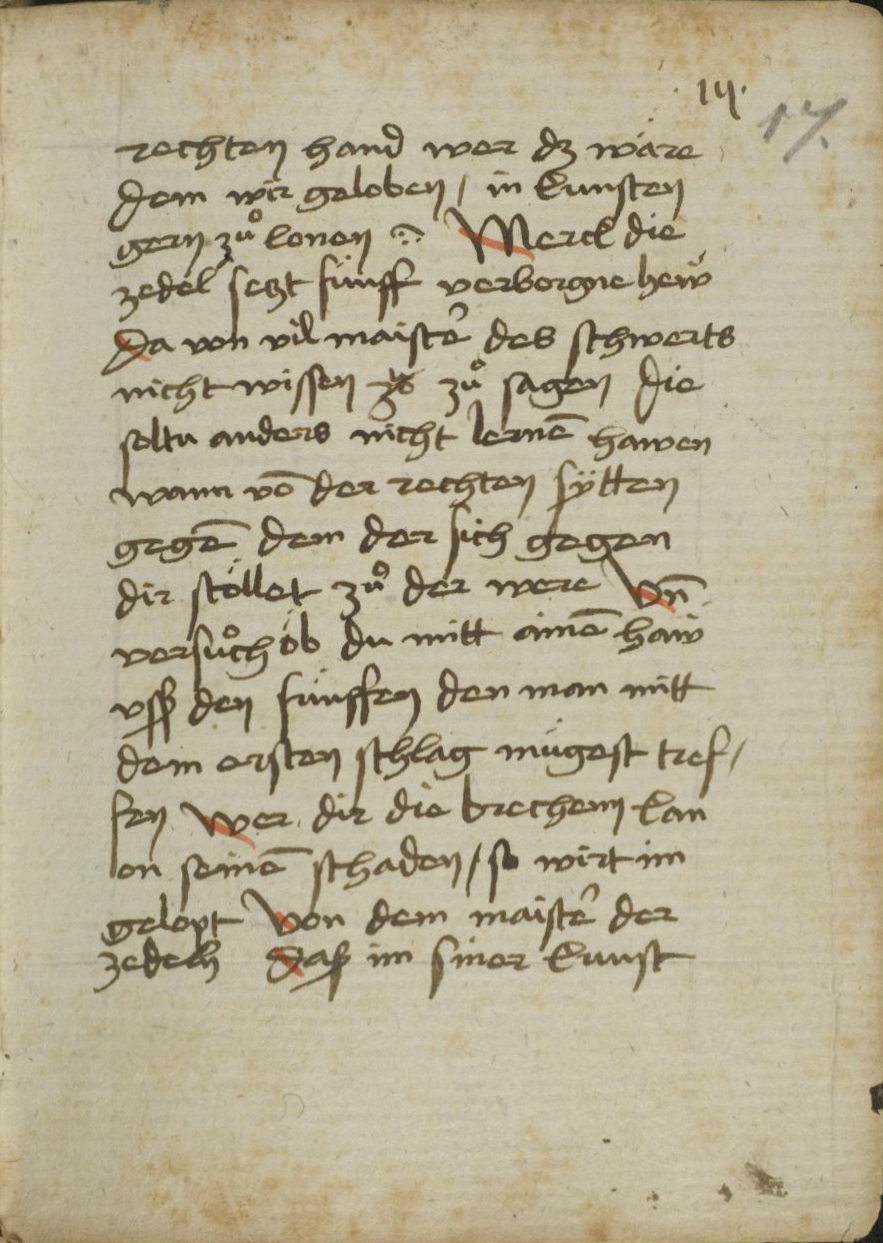 14.
17.
rechten hand wer dz wäre
dem wir geloben / in kunsten
gern zuͦ lonen Merck die
zedel setzt fünff verborgne hew
Da von vil maiste᷑ des schwerts
nicht wissen zuͦ sagen Die
soltu anders nicht lernē hawen
wann vō der rechten sÿtten
gegē dem der sich gegen
dir stöllet zuͦ der were Vn̄
versuͦch öb du mitt ainē haw
vsß den fünffen den man mitt
dem ersten schlag mügest tref/
fen wer dir die brechenn kan
on seinē schaden / so wirt im
gelopt Von dem maiste᷑ der
zedeln Daß im siner kunst